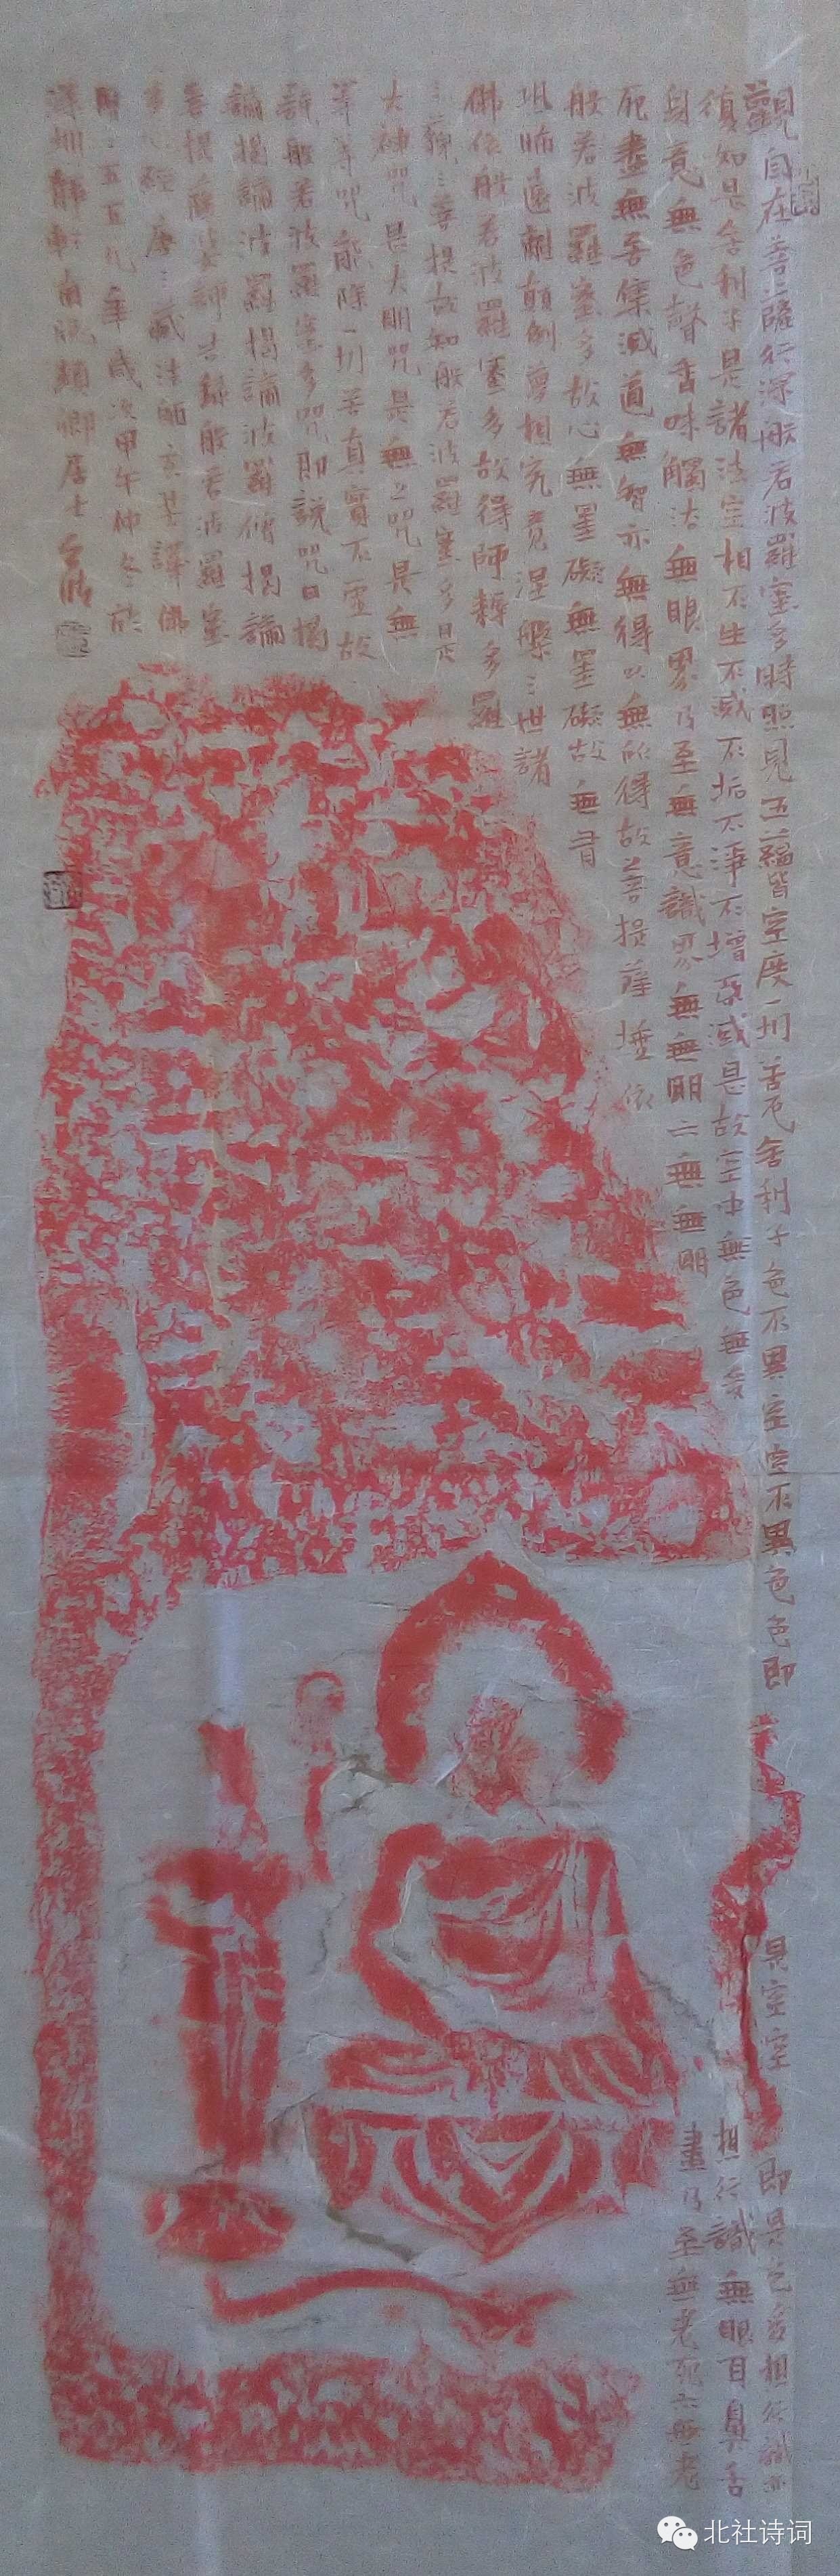 觀自在菩〻薩行深般若波羅蜜多時照見五蘊皆空度一切苦厄舍利子色不異空空不異色色即是空空即是色受想行識亦
復知是舍利子是諸法空相不生不滅不垢不淨不增不減是故空中無色無受想行識無眼耳鼻舌
身意無色聲香味觸法無眼界乃至無意識界無無明亦無無明盡乃至無老死亦無老
死盡無苦集滅道無智亦無得以無所得故〻菩提薩埵依
般若波羅蜜多故心無罣礙無罣礙故無有
恐怖遠離顛倒夢想究竟涅槃三世諸
佛依般若波羅蜜多故得阿耨多羅
三藐三菩提故知般若波羅蜜多是
大神咒是大明咒是無上咒是無
等等咒能除一切苦真實不虛故
說般若波羅蜜多咒即說咒曰揭
諦揭諦波羅揭諦波羅僧揭諦
菩提薩婆訶 般若波羅蜜
多心經唐三藏法師玄奘譯佛
五五九年歲次甲午仲冬於
居士
北社诗词